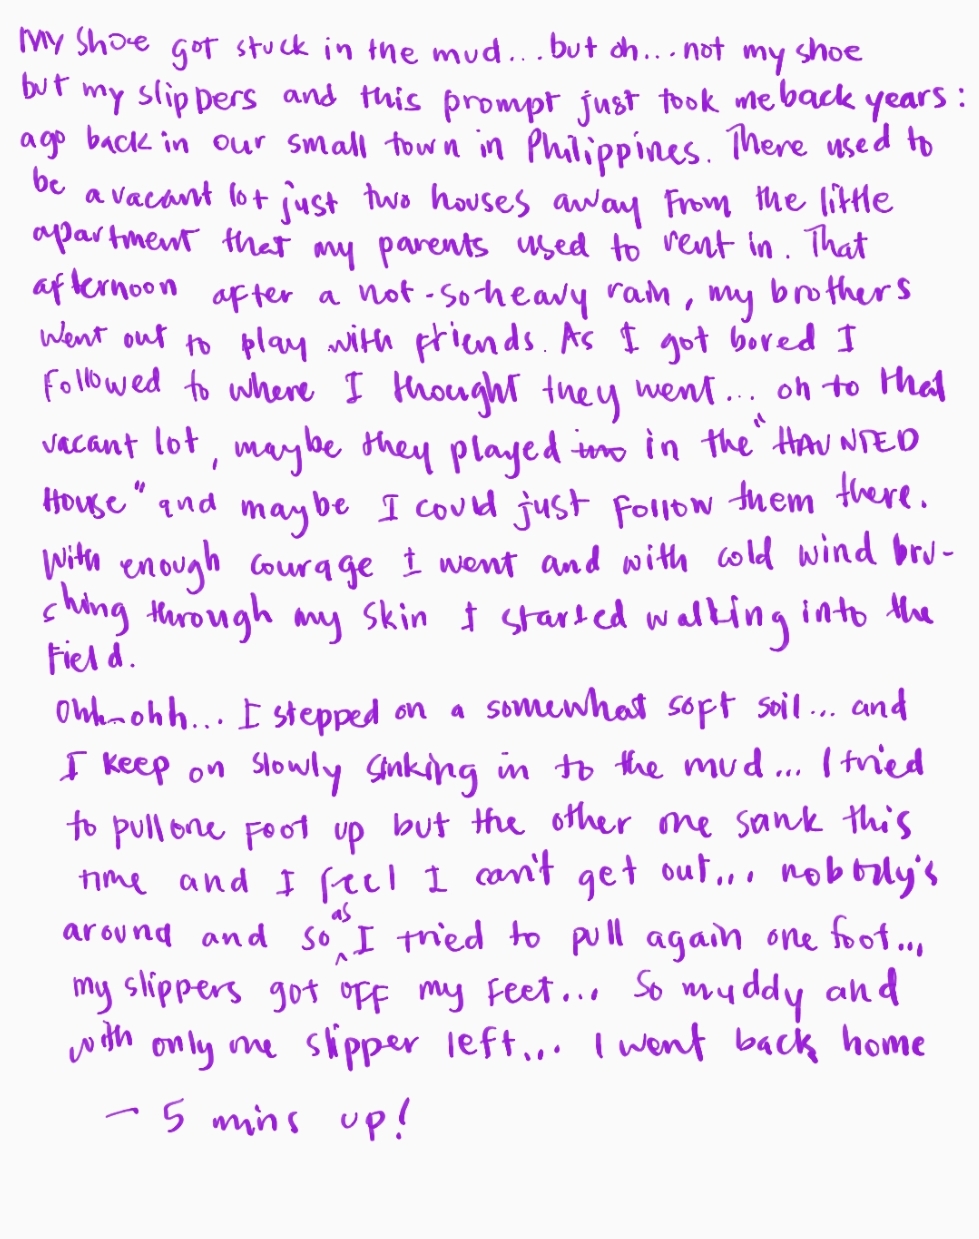 My shoe got stuck in the mud...but oh...not my shoe
but my slippers and this prompt just took me back years:
ago back in our small town in Philippines. There used to
be a vacant lot just two houses away from the little
apartment that my parents used to rent in. That
afternoon after a not-so-heavy rain, my brothers
went out to play with friends. As I got bored I
followed to where I thought they went... oh to that
vacant lot, maybe they played into in the "HAUNTED
House" and maybe I could just follow them there.
With enough courage I went and with cold wind bru-
shing through my skin I started walking into the
field.
Ohh-ohh... I stepped on a somewhat soft soil... and
I keep on slowly sinking in to the mud... I tried
to pull one foot up but the other one sank this
time and I feel I can't get out... nobody's
around and so as I tried to pull again one foot...
my slippers got off my feet... So muddy and
with only one slipper left... I went back home
- 5 mins up!